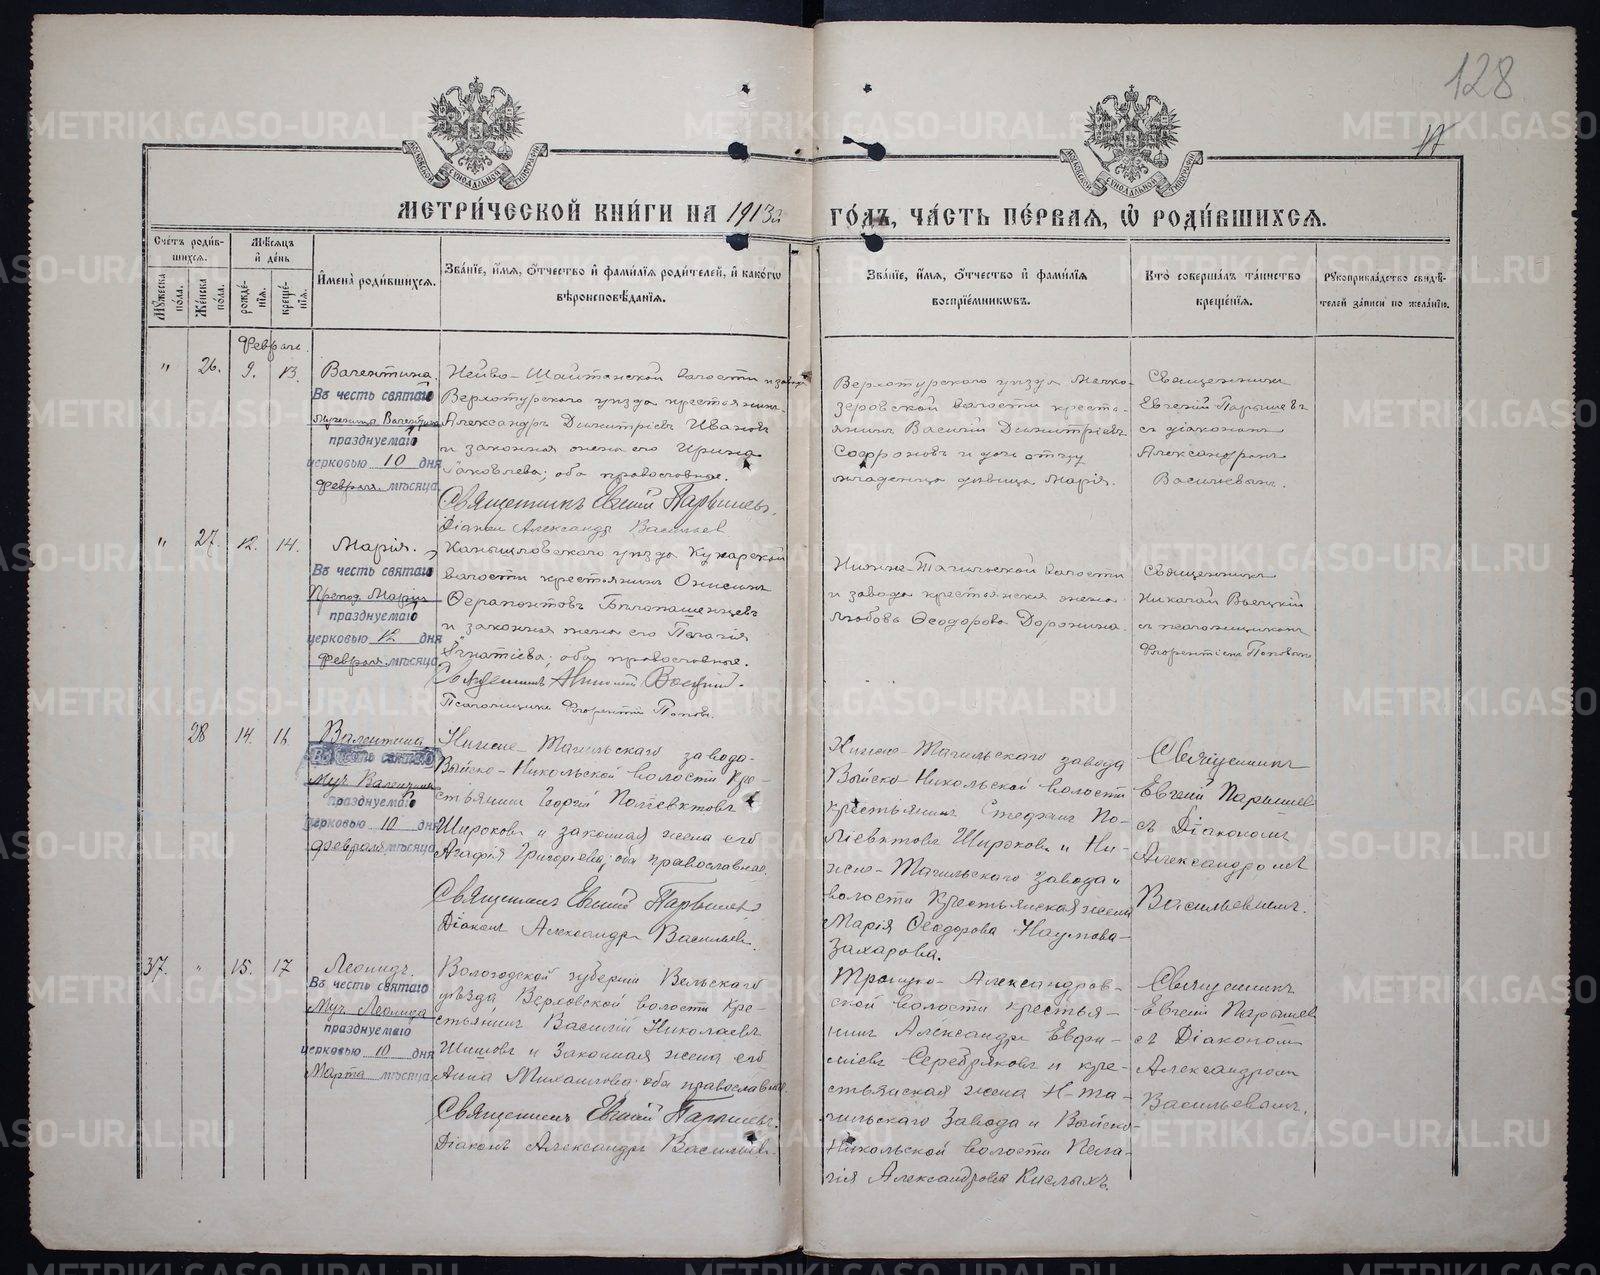 128
17
МОСКОВСКОЙ СУНОДАЛЬНОЙ ТИПОГРАФІИ
МОСКОВСКОЙ СУНОДАЛЬНОЙ ТИПОГРАФІИ
МЕТРИ́ЧЕСКОЙ КНИ́ГИ НА 1913й ГО́ДЪ, ЧА́СТЬ ПЕ́РВАЯ, Ѡ РОДИ́ВШИХСЯ.
Сче́тъ роди́вшихся.
Мꙋ́жеска по́ла.
Же́нска по́ла.
Мѣ́сяцъ и де́нь
рожде́нїя.
креще́нїя.
Имена̀ роди́вшихся.
Зва́нїе, и́мя, ѻ́тчество и фами́лїя роди́телей, и како́гѡ вѣроисповѣ́данїя.
Зва́нїе, и́мя, ѻ́тчество и фами́лїя воспрїе́мникѡвъ.
Кто̀ соверша́лъ та́инство креще́нїя.
Рꙋкоприкла́дство свидѣ́телей за́писи по жела́нїю.
Февраль.
" 26. 9. 13.
Валентина.
Въ честь святаю
Мученица Валентина
празднуемаю
церковью 10 дня
Февраля мѣсяца
Нейво-Шайтанской волости и завода
Верхотурскаго уѣзда крестьянинъ
Александръ Димитріевъ Ивановъ
и законная жена его Ирина
Іаковлева; оба православные.
Священникъ Евгений Парышевъ.
Діаконъ Александръ Васильев
Верхотурскаго уѣзда
волости кресть-
янинъ Василій Димитріевъ
Софроновъ и дочь отцу
младенца дѣвица Марія.
Священникъ
Евгеній Парышевъ
съ діакономъ
Александромъ
Васильевымъ.
" 27. 12. 14.
Марія.
Въ честь святаю
Препод. Марии
празднуемаю
церковью 12 дня
Февраля мѣсяца
Камышловскаго уѣзда Кунарской
волости крестьянинъ Онисимъ
Ѳерапонтовъ Бѣлопашенцевъ
и законная жена его Пелагія
Игнатіева; оба православные.
Священникъ Николай
Псаломщикъ Флорентій Поповъ.
Нижне-Тагильской волости
и завода крестьянская жена
Любовь Ѳеодорова Доронина.
Священникъ
Николай
съ псаломщикомъ
Флорентіемъ Поповымъ
28 14. 16
Валентина
Въ честь святаю
Муч. Валентины
празднуемаю
церковью 10 дня
февраль мѣсяца
Нижне-Тагильскаго завода
Выйско-Никольской волости кре-
стьянинъ Георгій Поліевктовъ
Широковъ и законная жена его
Агафія Григорьева; оба православные.
Священникъ Евгений Парышевъ
Діаконъ Александръ Васильевъ.
Нижне-Тагильскаго завода
Выйско-Никольской волости
крестьянинъ Стефанъ По-
ліевктовъ Широковъ и Ни-
жне-Тагильскаго завода и
волости Крестьянская жена
Марія Ѳеодорова Наумова-
Захарова.
Священникъ
Евгеній Парышев
съ Діакономъ
Александромъ
Васильевымъ.
37. " 15. 17
Леонидъ.
Въ честь святаю
Муч. Леонида
празднуемаю
церковью 10 дня
Марта мѣсяца
Вологодской губерніи Вельскаго
уѣзда Верховской волости Кре-
стьянинъ Василій Николаевъ
Шишовъ и Законная жена его
Анна Михаилова; оба православные.
Священникъ Евгений Парышевъ.
Діаконъ Александръ Васильевъ.
Троицко-Александров-
ской волости крестья-
нинъ Александръ Евфи-
міевъ Серебряковъ и кре-
стьянская жена Н-Та-
гильскаго Завода и Выйско-
Никольской волости Пела-
гія Александрова Кислыхъ.
Священникъ
Евгеній Парышев
съ Діакономъ
Александромъ
Васильевымъ.
METRIKI.GASO-URAL.RU